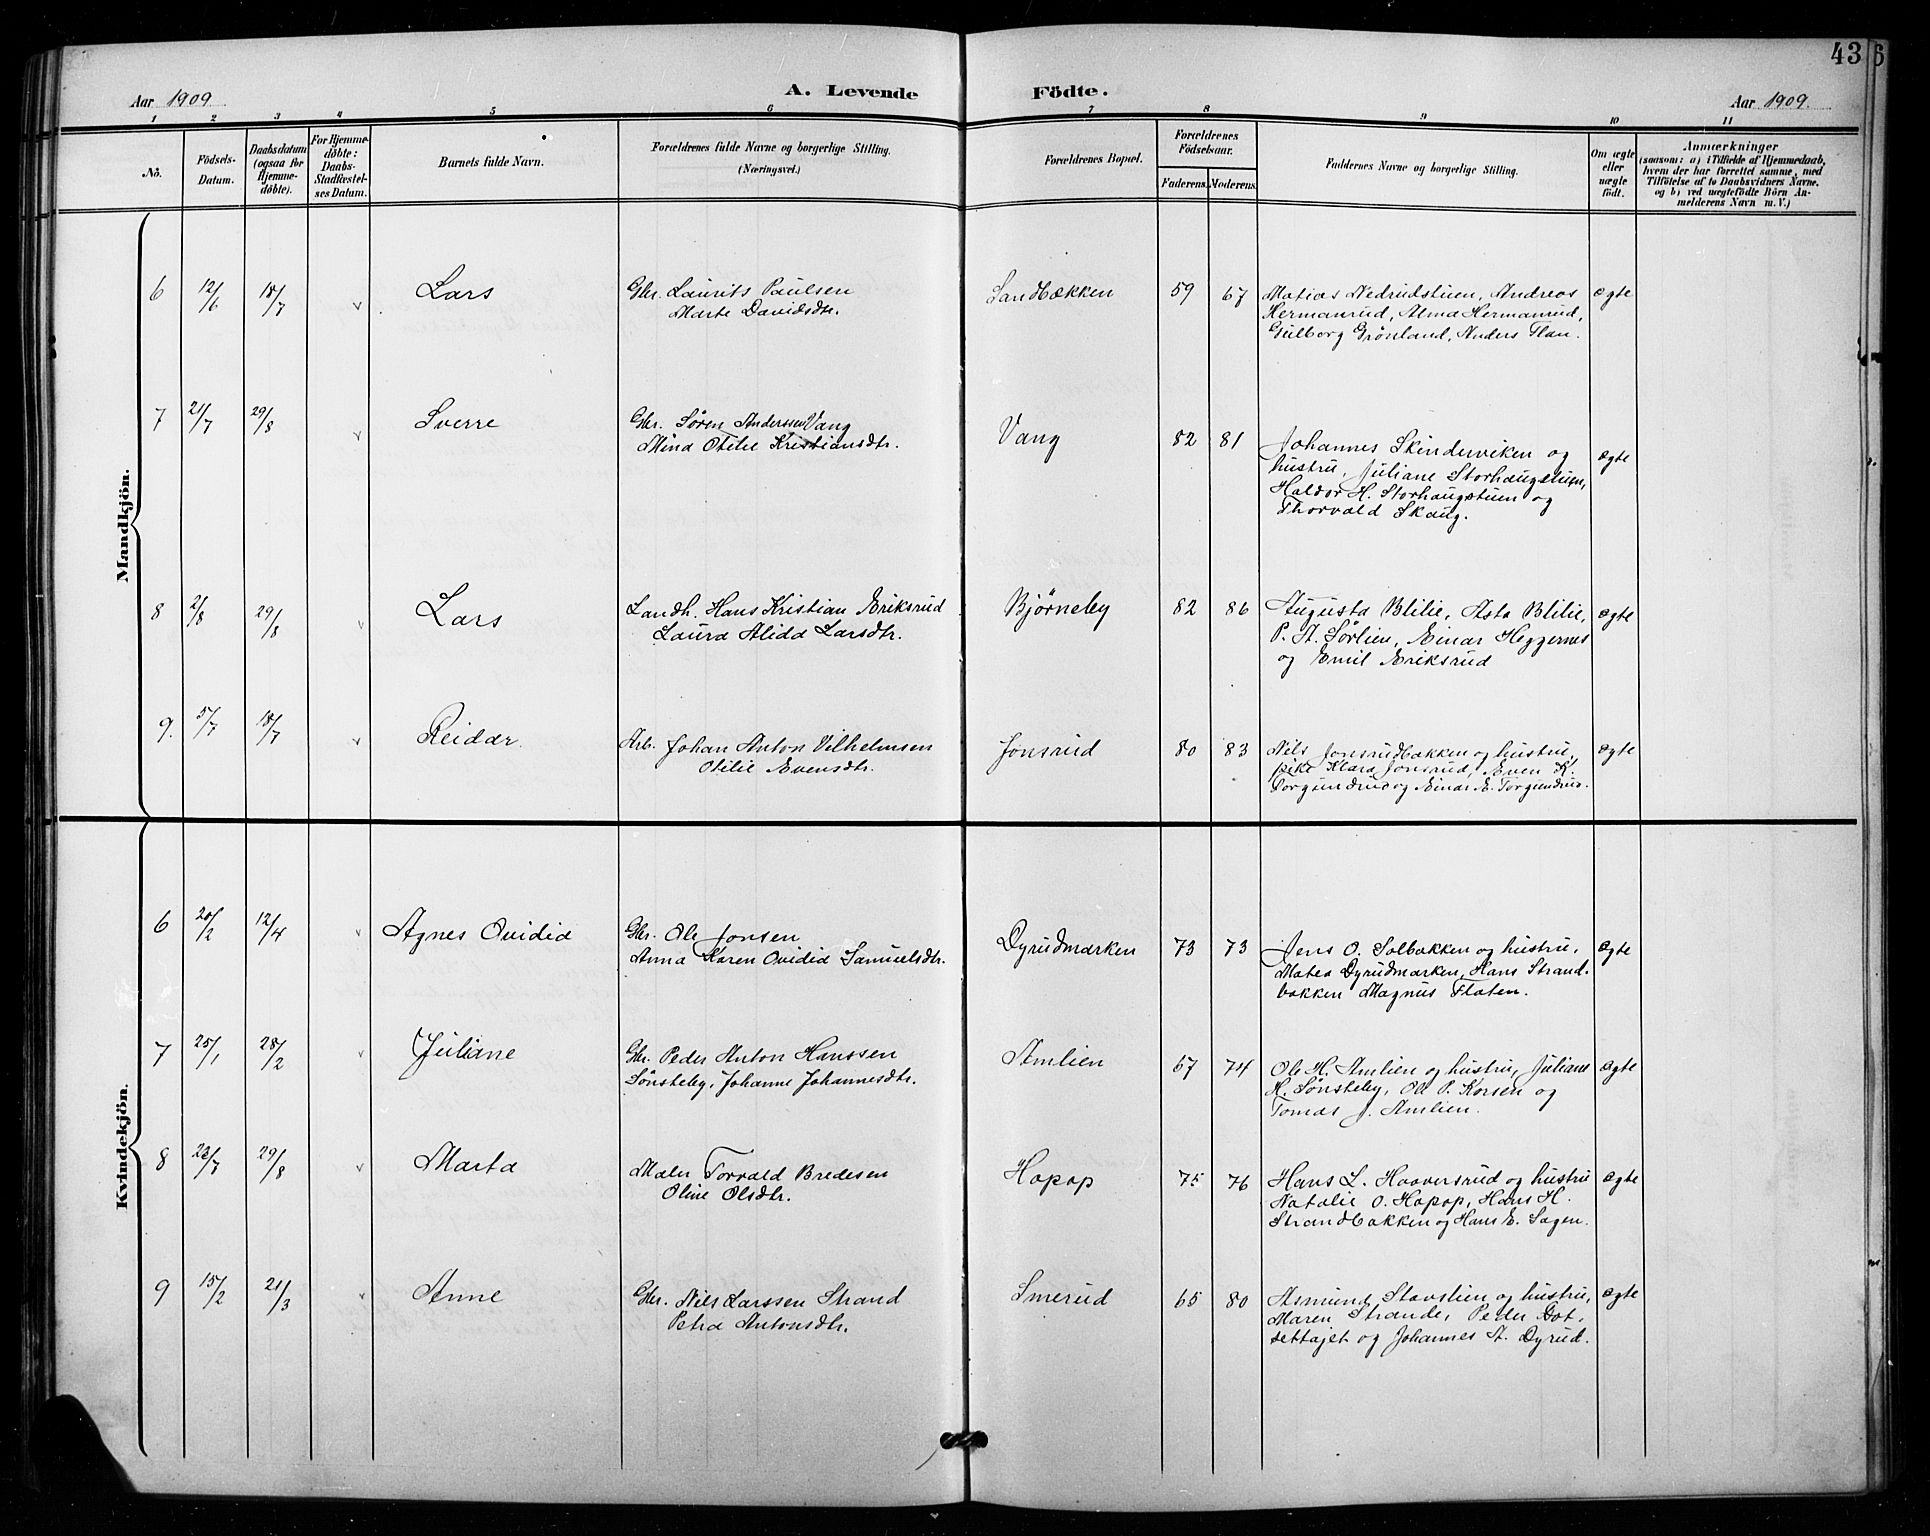 43
Aar 1909
A. Levende
Födte.
Aar 1909.
1 2 3 4 5 6 7 8 9 10 11
No.
Födsels-
Datum.
Daabsdatum
(ogsaa for
Hjemme-
döbte).
For Hjemme-
döbte:
Daabs-
Stadfæstel-
ses Datum.
Barnets fulde Navn.
Forældrenes fulde Navne og borgerlige Stilling.
(Næringsvei.)
Forældrenes Bopæl.
Forældrenes
Födselsaar.
Faderens. Moderens.
Faddernes Navne og borgerlige Stilling.
Om ægte
eller
uægte
födt.
Anmærkninger
(saasom: a) i Tilfælde af Hjemmedaab,
hvem der har forrettet samme, med
Tilföielse af to Daabsvidners Navne.
og b) ved uægtefödte Börn An-
melderens Navn m. V.)
Mandkjön.
6 12/6 18/7 v Lars
Gbr. Laurits Paulsen
Marte Davidsdtr.
Sandbækken 59 67
Matias Nedrudstuen, Andreas
Hermanrud, Alma Hermanrud,
Gulborg Grönland, Anders Flan.
ægte
7 21/7 29/8 v Sverre
Gbr. Søren Anderssen Vang
Mina Otilie Kristiansdtr.
Vang 82 81
Johannes Skinderviken og
hustru, Juliane Storhaugstuen,
Haldor H. Storhaugstuen og
Thorvald Skaug.
ægte
8 2/8 29/8 v Lars
Landh. Hans Kristian Eriksrud
Laura Alida Larsdtr.
Bjørneby 82 86
Augusta Blilie, Asta Blilie,
P. A. Sørlien, Einar Heggernes
og Emil Eriksrud
ægte
9. 5/7 18/7 v Reidar.
Arb. Johan Anton Vilhelmsen
Otilie Evensdtr.
Jonsrud 80 83
Nils Jonsrudbakken og hustru,
pike Klara Jonsrud, Even K.
Torgundrud og Einar E. Torgundrud.
ægte
Kvindekjön.
6 20/2 12/4 v Agnes Ovidia
Gbr. Ole Jonsen
Anna Karen Ovidia Samuelsdtr.
Dyrudmarken 73 73
Jens O. Solbakken og hustru,
Matea Dyrudmarken, Hans Strand-
bakken Magnus Flaten.
ægte
7 25/1 28/2 v Juliane
Gbr. Peder Anton Hanssen
Sønsteby, Johanne Johannesdtr.
Amlien 67 74
Ole H. Amlien og hustru, Juliane
H. Sønsteby, Ole P. Korsen og
Tomas J. Amlien.
ægte
8 23/7 29/8 v Marta
Maler Torvald Bredesen
Oline Olsdtr.
Hopop 75 76
Hans L. Haaversrud og hustru
Natalie O. Hopop, Hans H.
Strandbakken og Hans E. Sagen.
ægte
9 15/2 21/3 v Anne
Gbr. Nils Larssen Strand
Petra Antonsdtr.
Smerud 65 80
Asmund Stavslien og hustru,
Maren Strande, Peder Dot-
settajet og Johannes A. Dyrud.
ægte